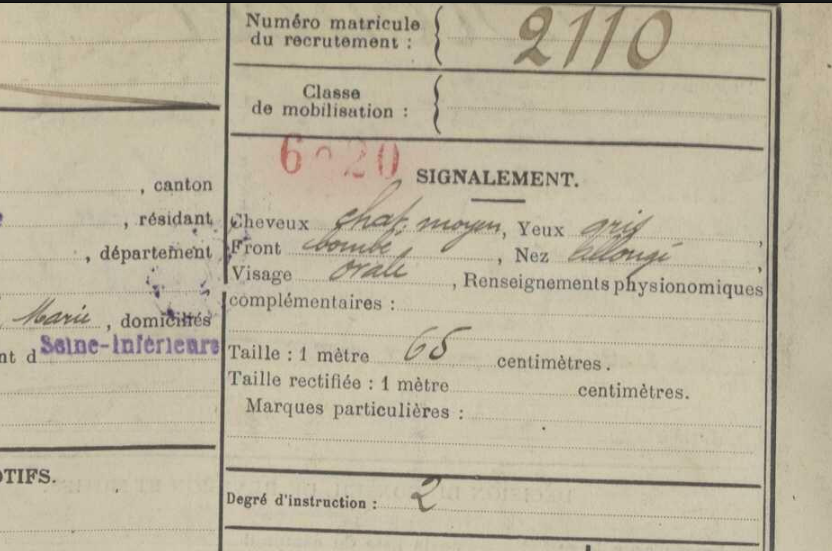 Numéro matricule
du recrutement : 2110
Classe
de mobilisation :
, canton
SIGNALEMENT.
, résidant
Cheveux chat. moyen, Yeux gris,
, département
Front bombé, Nez allongé,
Visage ovale, Renseignements physionomiques
complémentaires :
Marie, domiciliés
nt d Seine-Inférieure
Taille : 1 mètre 65 centimètres.
Taille rectifiée : 1 mètre centimètres.
Marques particulières :
OTIFS.
Degré d'instruction : 2